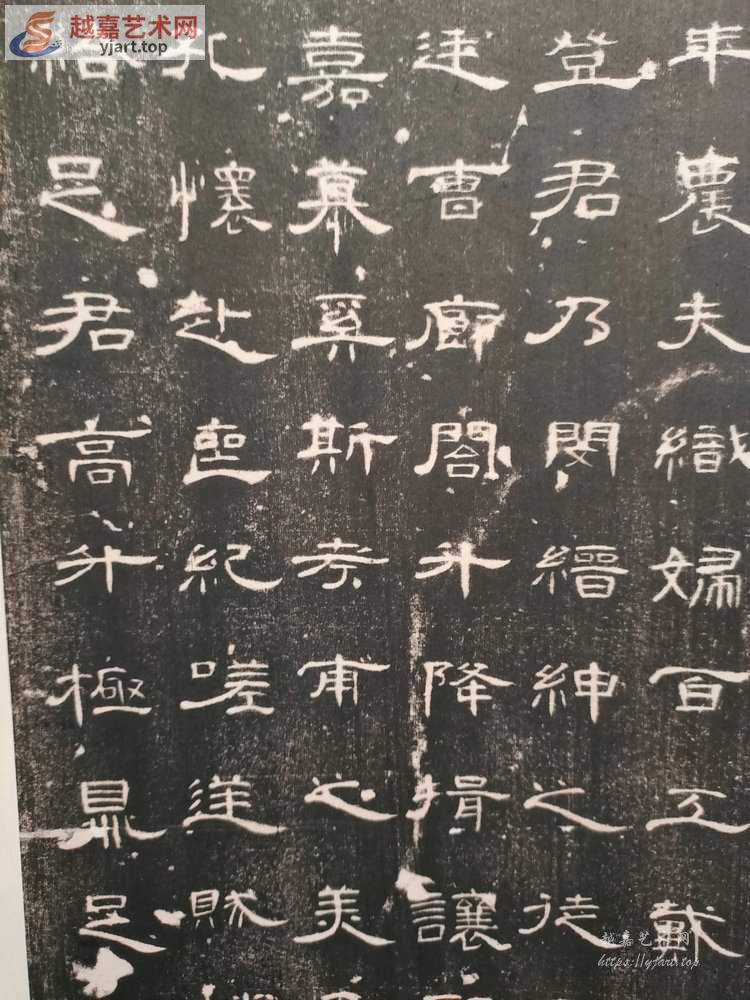 越嘉艺术网
yjart.top
年農夫織婦百工戴
登君乃閔縉紳之徒
廷曹廊閣升降揖讓
嘉慕奚斯考甫之美
孔懷赴喪紀嗟逆賊
給足君高升極鼎足
越嘉艺术网
https://yjart.top